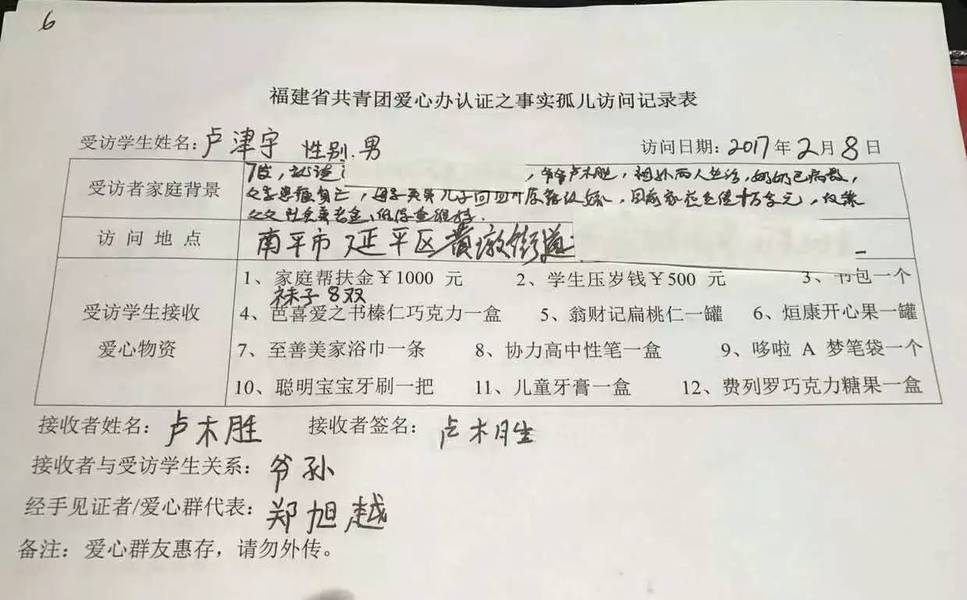 6
福建省共青团爱心办认证之事实孤儿访问记录表
受访学生姓名：卢津宇 性别.男 访问日期：2017年2月8日
7岁，就读 ，爷爷卢木胜，祖孙两人生活，奶奶已病故，
受访者家庭背景
父亲患癌身亡，母亲
父
访问地点 南平市延平区黄墩街道
1、家庭帮扶金￥1000 元 2、学生压岁钱￥500 元 3、书包一个
袜子8双
受访学生接收 4、芭喜爱之书榛仁巧克力一盒 5、翁财记扁桃仁一罐 6、烜康开心果一罐
爱心物资 7、至善美家浴巾一条 8、协力高中性笔一盒 9、哆啦 A 梦笔袋一个
10、聪明宝宝牙刷一把 11、儿童牙膏一盒 12、费列罗巧克力糖果一盒
接收者姓名：卢木胜 接收者签名：卢木胜
接收者与受访学生关系：爷孙
经手见证者/爱心群代表：郑旭越
备注：爱心群友惠存，请勿外传。